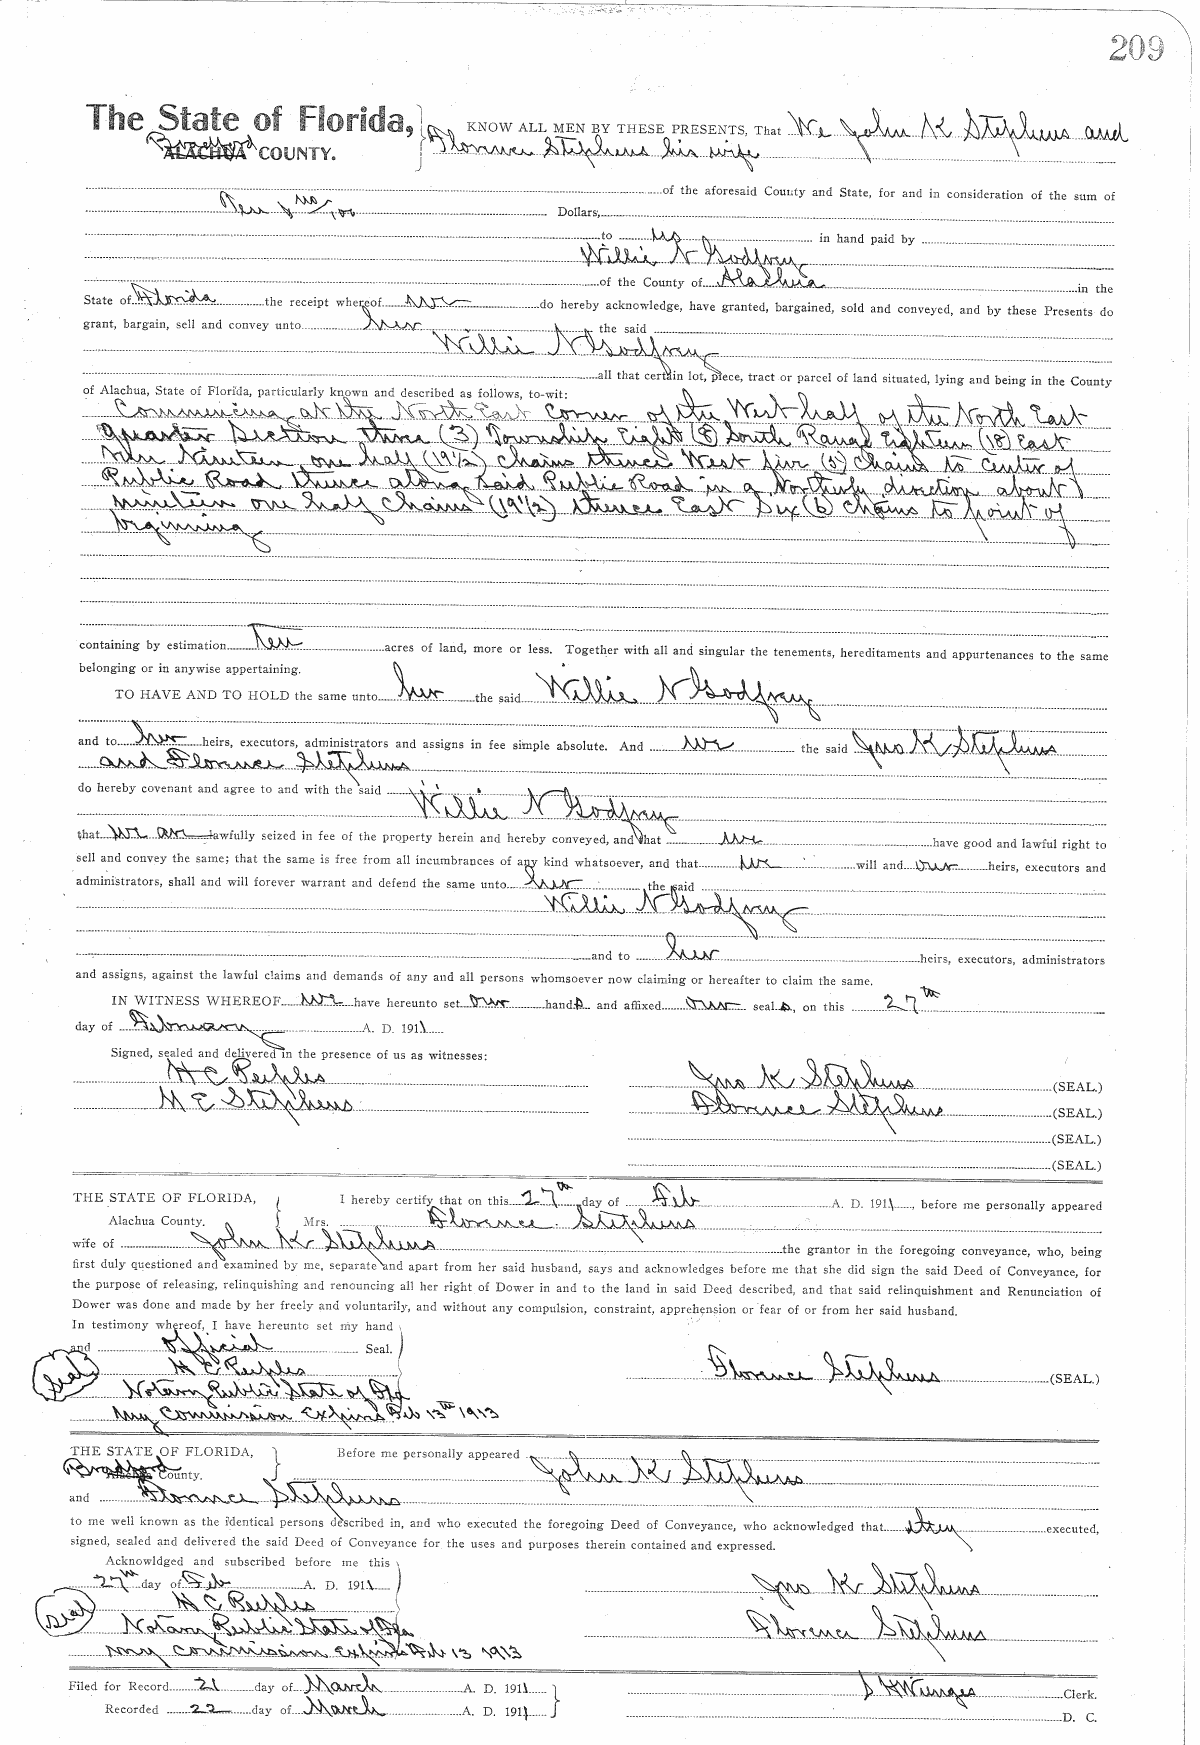 209
The State of Florida, KNOW ALL MEN BY THESE PRESENTS, That We John K Stephens and
Bradford ALACHUA COUNTY. Florence Stephens his wife
of the aforesaid County and State, for and in consideration of the sum of
Ten & no/100 Dollars,
to us in hand paid by
Willie N Godfrey
of the County of Alachua in the
State of Florida the receipt whereof we do hereby acknowledge, have granted, bargained, sold and conveyed, and by these Presents do
grant, bargain, sell and convey unto her the said
Willie N Godfrey
all that certain lot, piece, tract or parcel of land situated, lying and being in the County
of Alachua, State of Florida, particularly known and described as follows, to-wit:
Commencing at the North East Corner of the West half of the North East
Quarter Section three (3) Township Eight (8) South Range Eighteen (18) East
Run Nineteen one half (19½) chains thence West five (5) chains to Center of
Public Road thence along said Public Road in a Northerly direction about
nineteen one half chains (19½) thence East Six (6) chains to point of
beginning
containing by estimation Ten acres of land, more or less. Together with all and singular the tenements, hereditaments and appurtenances to the same
belonging or in anywise appertaining.
TO HAVE AND TO HOLD the same unto her the said Willie N Godfrey
and to her heirs, executors, administrators and assigns in fee simple absolute. And we the said Jno K Stephens
and Florence Stephens
do hereby covenant and agree to and with the said
Willie N Godfrey
that we are lawfully seized in fee of the property herein and hereby conveyed, and that we have good and lawful right to
sell and convey the same; that the same is free from all incumbrances of any kind whatsoever, and that we will and our heirs, executors and
administrators, shall and will forever warrant and defend the same unto her the said
Willie N Godfrey
and to her heirs, executors, administrators
and assigns, against the lawful claims and demands of any and all persons whomsoever now claiming or hereafter to claim the same.
IN WITNESS WHEREOF we have hereunto set our hands and affixed our seals, on this 27th
day of February A. D. 1911
Signed, sealed and delivered in the presence of us as witnesses:
H C Peeples Jno K Stephens (SEAL.)
M E Stephens Florence Stephens (SEAL.)
(SEAL.)
(SEAL.)
THE STATE OF FLORIDA, I hereby certify that on this 27th day of Feb A. D. 1911, before me personally appeared
Alachua County. Mrs. Florence Stephens
wife of John K Stephens the grantor in the foregoing conveyance, who, being
first duly questioned and examined by me, separate and apart from her said husband, says and acknowledges before me that she did sign the said Deed of Conveyance, for
the purpose of releasing, relinquishing and renouncing all her right of Dower in and to the land in said Deed described, and that said relinquishment and Renunciation of
Dower was done and made by her freely and voluntarily, and without any compulsion, constraint, apprehension or fear of or from her said husband.
In testimony whereof, I have hereunto set my hand
and official Seal.
Seal H C Peeples Florence Stephens (SEAL.)
Notary Public State of Fla
My Commission Expires Feb 13th 1913
THE STATE OF FLORIDA, Before me personally appeared
Bradford Alachua County. John K Stephens
and Florence Stephens
to me well known as the identical persons described in, and who executed the foregoing Deed of Conveyance, who acknowledged that they executed,
signed, sealed and delivered the said Deed of Conveyance for the uses and purposes therein contained and expressed.
Acknowldged and subscribed before me this
27th day of Feb A. D. 1911 Jno K Stephens
Seal H C Peeples
Notary Public State of Fla Florence Stephens
My Commission Expires Feb 13 1913
Filed for Record 21 day of March A. D. 1911 S H Wienges Clerk.
Recorded 22 day of March A. D. 1911 D. C.